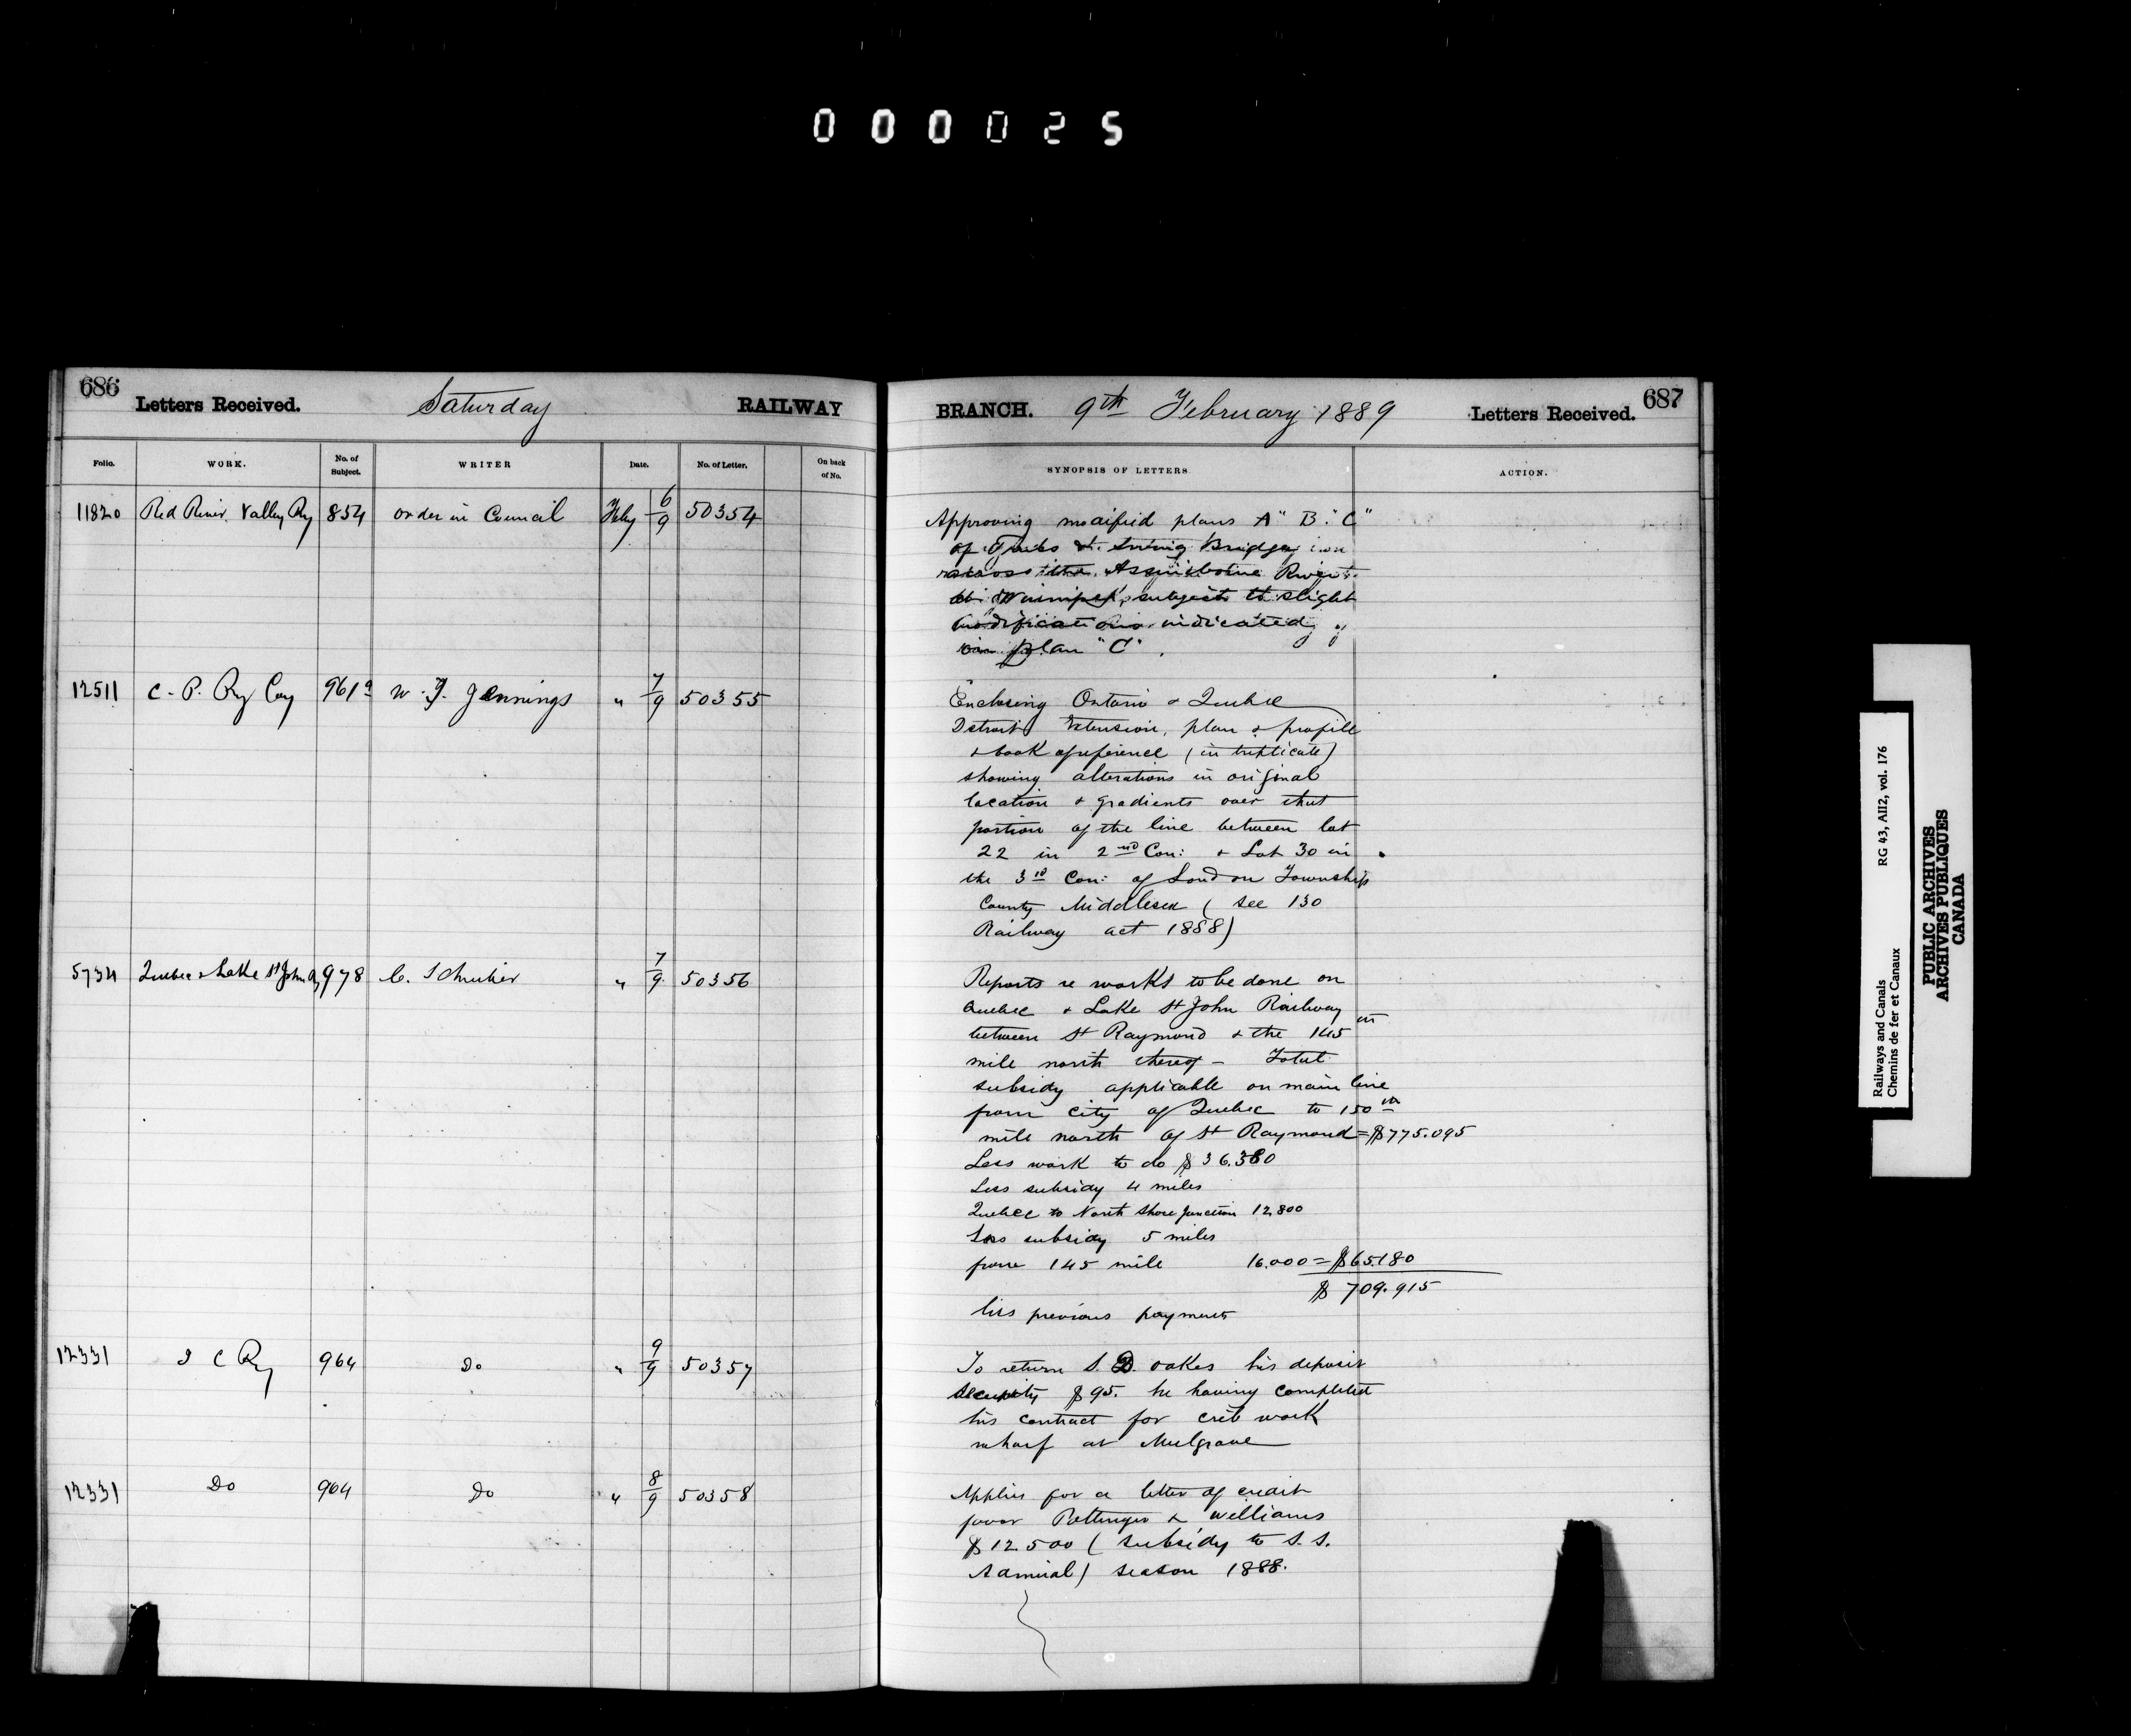 000025
686
Letters Received.
Saturday
RAILWAY
Folio.
WORK.
No. of Subject.
WRITER
Date.
No. of Letter.
On back of No.
11820 Red River Valley Ry 854 Order in Council Feby 6/9 50354
12511 C. P. Ry Coy 961a W. T. Jennings " 7/9 50355
5734 Quebec & Lake St John Ry 978 C. Schreiber " 7/9 50356
12331 I C Ry 964 Do " 9/9 50357
12331 Do 964 Do " 8/9 50358
BRANCH.
9th February 1889
Letters Received.
687
SYNOPSIS OF LETTERS
ACTION.
Approving modified plans A" B." C"
of Bridge
across the Assiniboine River
at Winnipeg, subject to slight
modifications indicated
on plan "C".
Enclosing Ontario & Quebec
Detroit Extension, plan & profile
& book of reference (in triplicate)
showing alterations in original
location & gradients over that
portion of the line between lot
22 in 2nd Con: & Lot 30 in
the 3rd Con: of London Township
County Middlesex (see 130
Railway act 1888)
Reports re works to be done on
Quebec & Lake St John Railway
between St Raymond & the 145th
mile north thereof - Total
subsidy applicable on main line
from city of Quebec to 150th
mile north of St Raymond = $775.095
Less work to do $36.380
Less subsidy 4 miles
Quebec to North Shore Junction 12,800
Less subsidy 5 miles
from 145 mile 16.000 = $65.180
$709.915
less previous payments
To return S. D. Oakes his deposit
security $95. he having completed
his contract for crib work
wharf at Mulgrave
Applies for a letter of credit
favor Pottinger & Williams
$12.500 (subsidy to S.S.
Admiral) season 1888.
Railways and Canals
Chemins de fer et Canaux
RG 43, AII2, vol. 176
PUBLIC ARCHIVES
ARCHIVES PUBLIQUES
CANADA